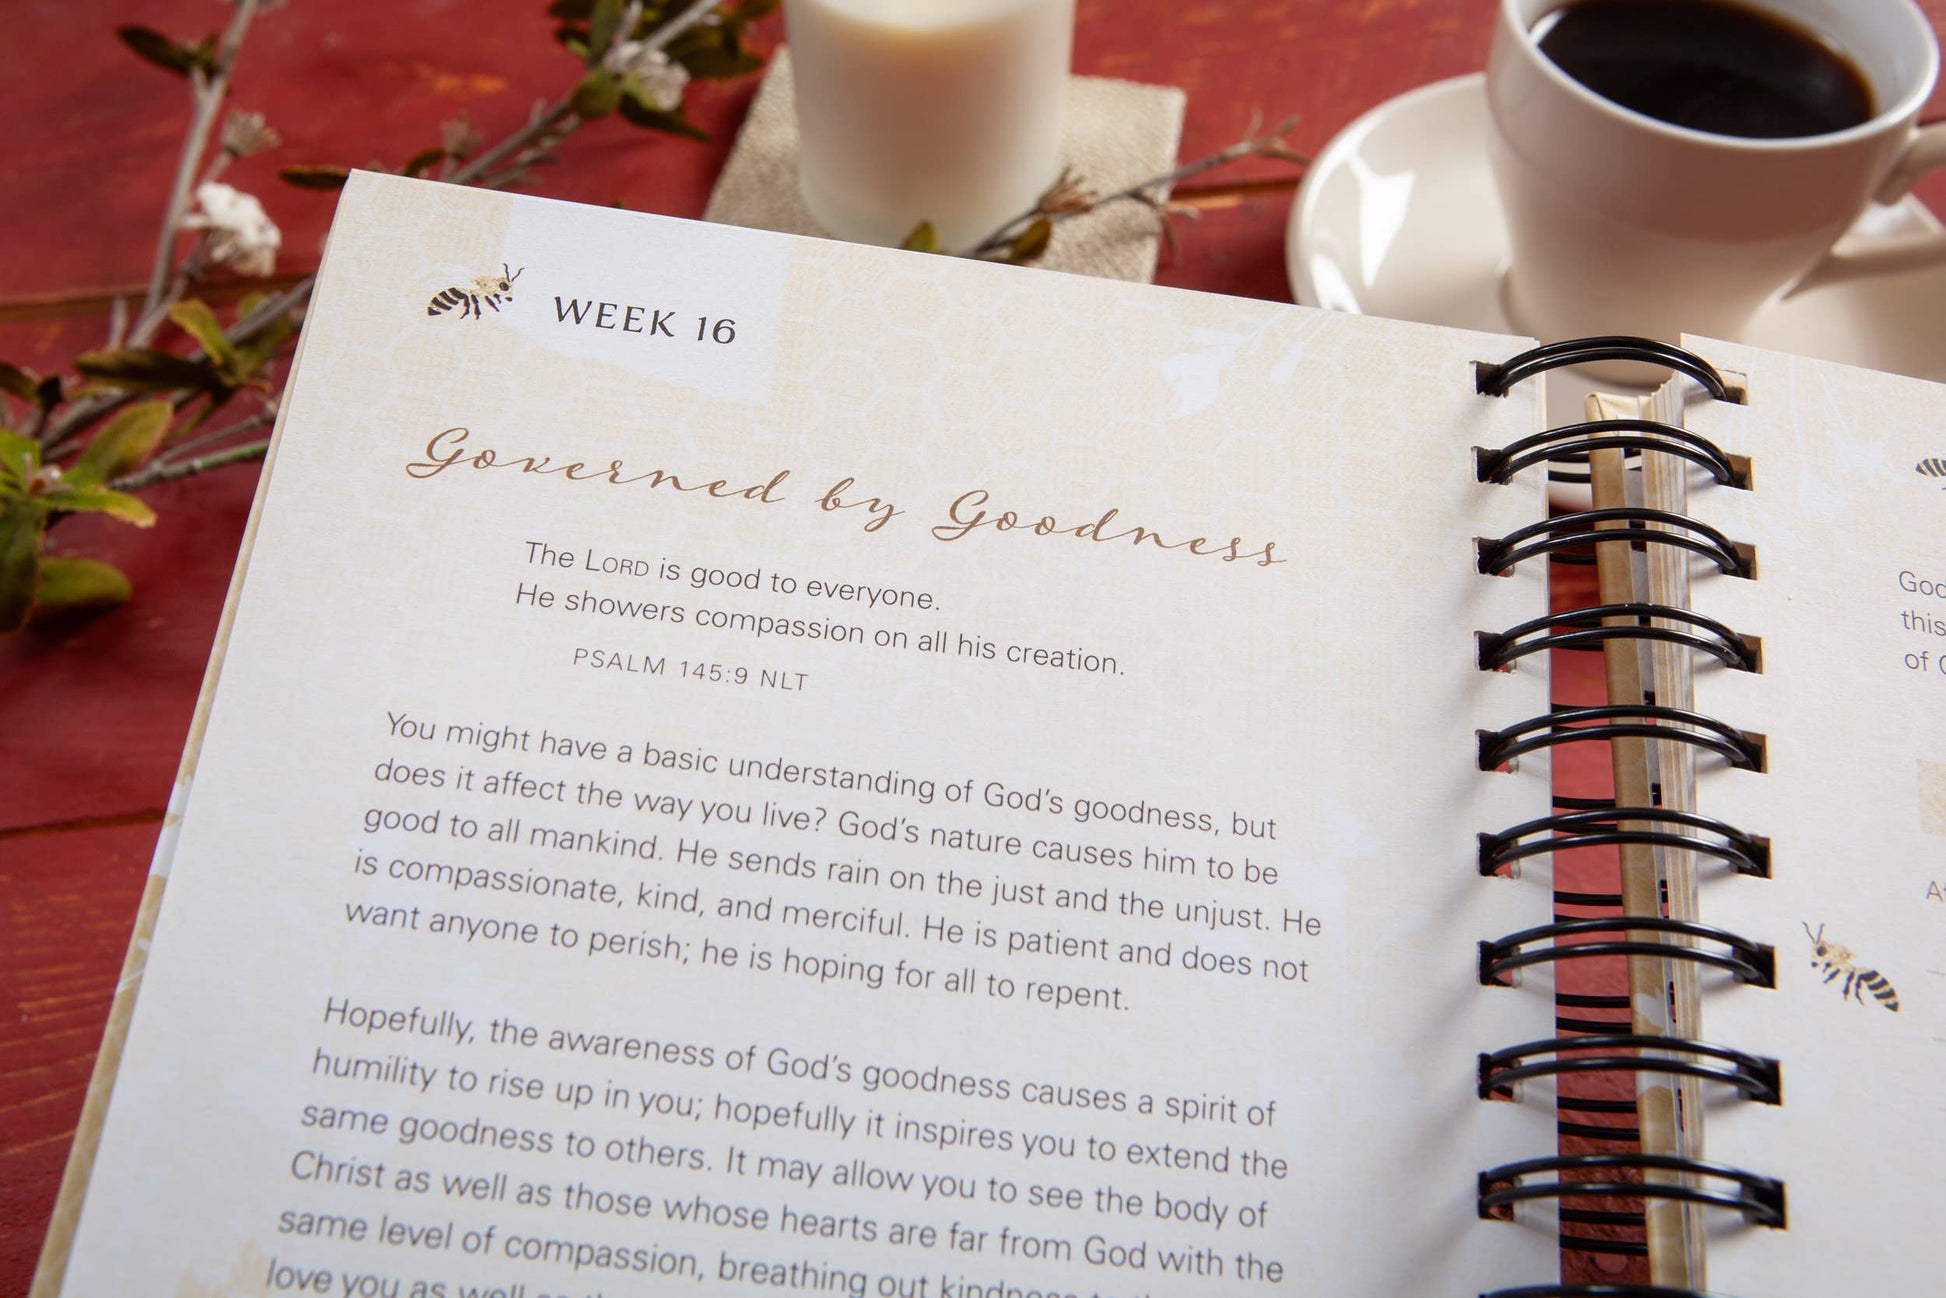 WEEK 16
Governed by Goodness
The LORD is good to everyone.
He showers compassion on all his creation.
PSALM 145:9 NLT
You might have a basic understanding of God's goodness, but
does it affect the way you live? God's nature causes him to be
good to all mankind. He sends rain on the just and the unjust. He
is compassionate, kind, and merciful. He is patient and does not
want anyone to perish; he is hoping for all to repent.
Hopefully, the awareness of God's goodness causes a spirit of
humility to rise up in you; hopefully it inspires you to extend the
same goodness to others. It may allow you to see the body of
Christ as well as those whose hearts are far from God with the
same level of compassion, breathing out kindness
love you as well
this
of